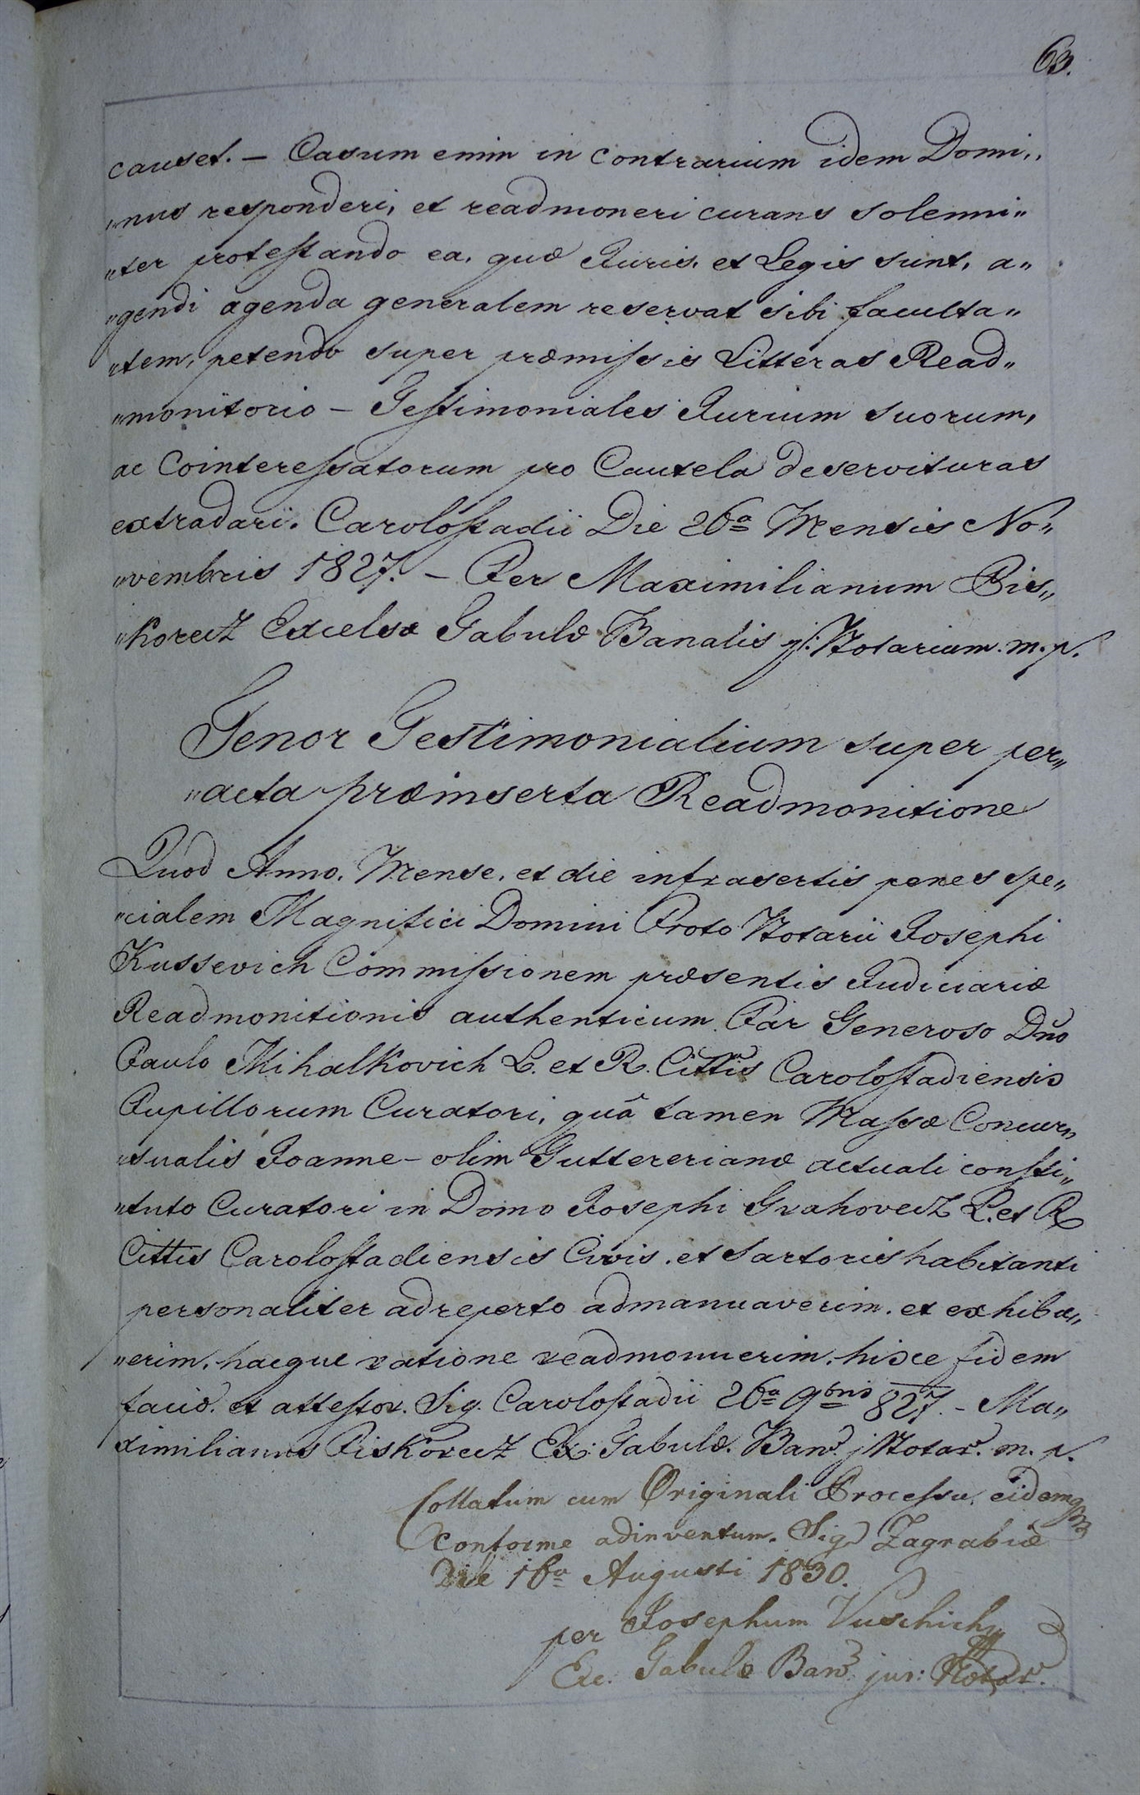 63.
causet. – Casum enim in contrarium idem Domi„
„nus responderi, et readmoneri curans solenni„
„ter protestando ea, quæ Juris, et Legis sunt, a„
„gendi agenda generalem reservat sibi faculta„
„tem, petendo super præmissis Litteras Read„
„monitorio – Testimoniales Jurium suorum,
ac Cointeressatorum pro Cautela deservituras
extradari. Carolostadii Die 26a Mensis No„
„vembris 1827. – Per Maximilianum Pis„
„korecz Excelsæ Tabulæ Banalis j. Notarium. m. p.
Tenor Testimonialium super per„
„acta præinserta Readmonitione
Quod Anno, Mense, et die infrasertis penes spe„
„cialem Magnifici Domini Proto Notarii Josephi
Kussevich Commissionem præsentis Judiciariæ
Readmonitionis authenticum Par Generoso Dno
Paulo Mihalkovich L. et R. Cittis Carolostadiensis
Pupillorum Curatori, quâ tamen Massæ Concur„
„sualis Joanne – olim Guttererianæ actuali consti„
„tuto Curatori in Domo Josephi Gvahovecz L. et R
Cittis Carolostadiensis Civis, et Sartoris habitanti
personaliter adreperto admanuaverim, et exhibu„
„erim, hacque ratione readmonuerim, hisce fidem
facio, et attestor. Sig. Carolostadii 26a 9bris 827. – Ma„
ximilianus Piskorecz Ex. Tabulæ. Bans. j. Notars. m. p.
Collatum cum Originali Processu, eidemq
conforme adinventum. Sig. Zagrabiæ
Die 16a Augusti 1830.
per Josephum Vuschich
Exc. Tabulæ Bans. jur: Notar.